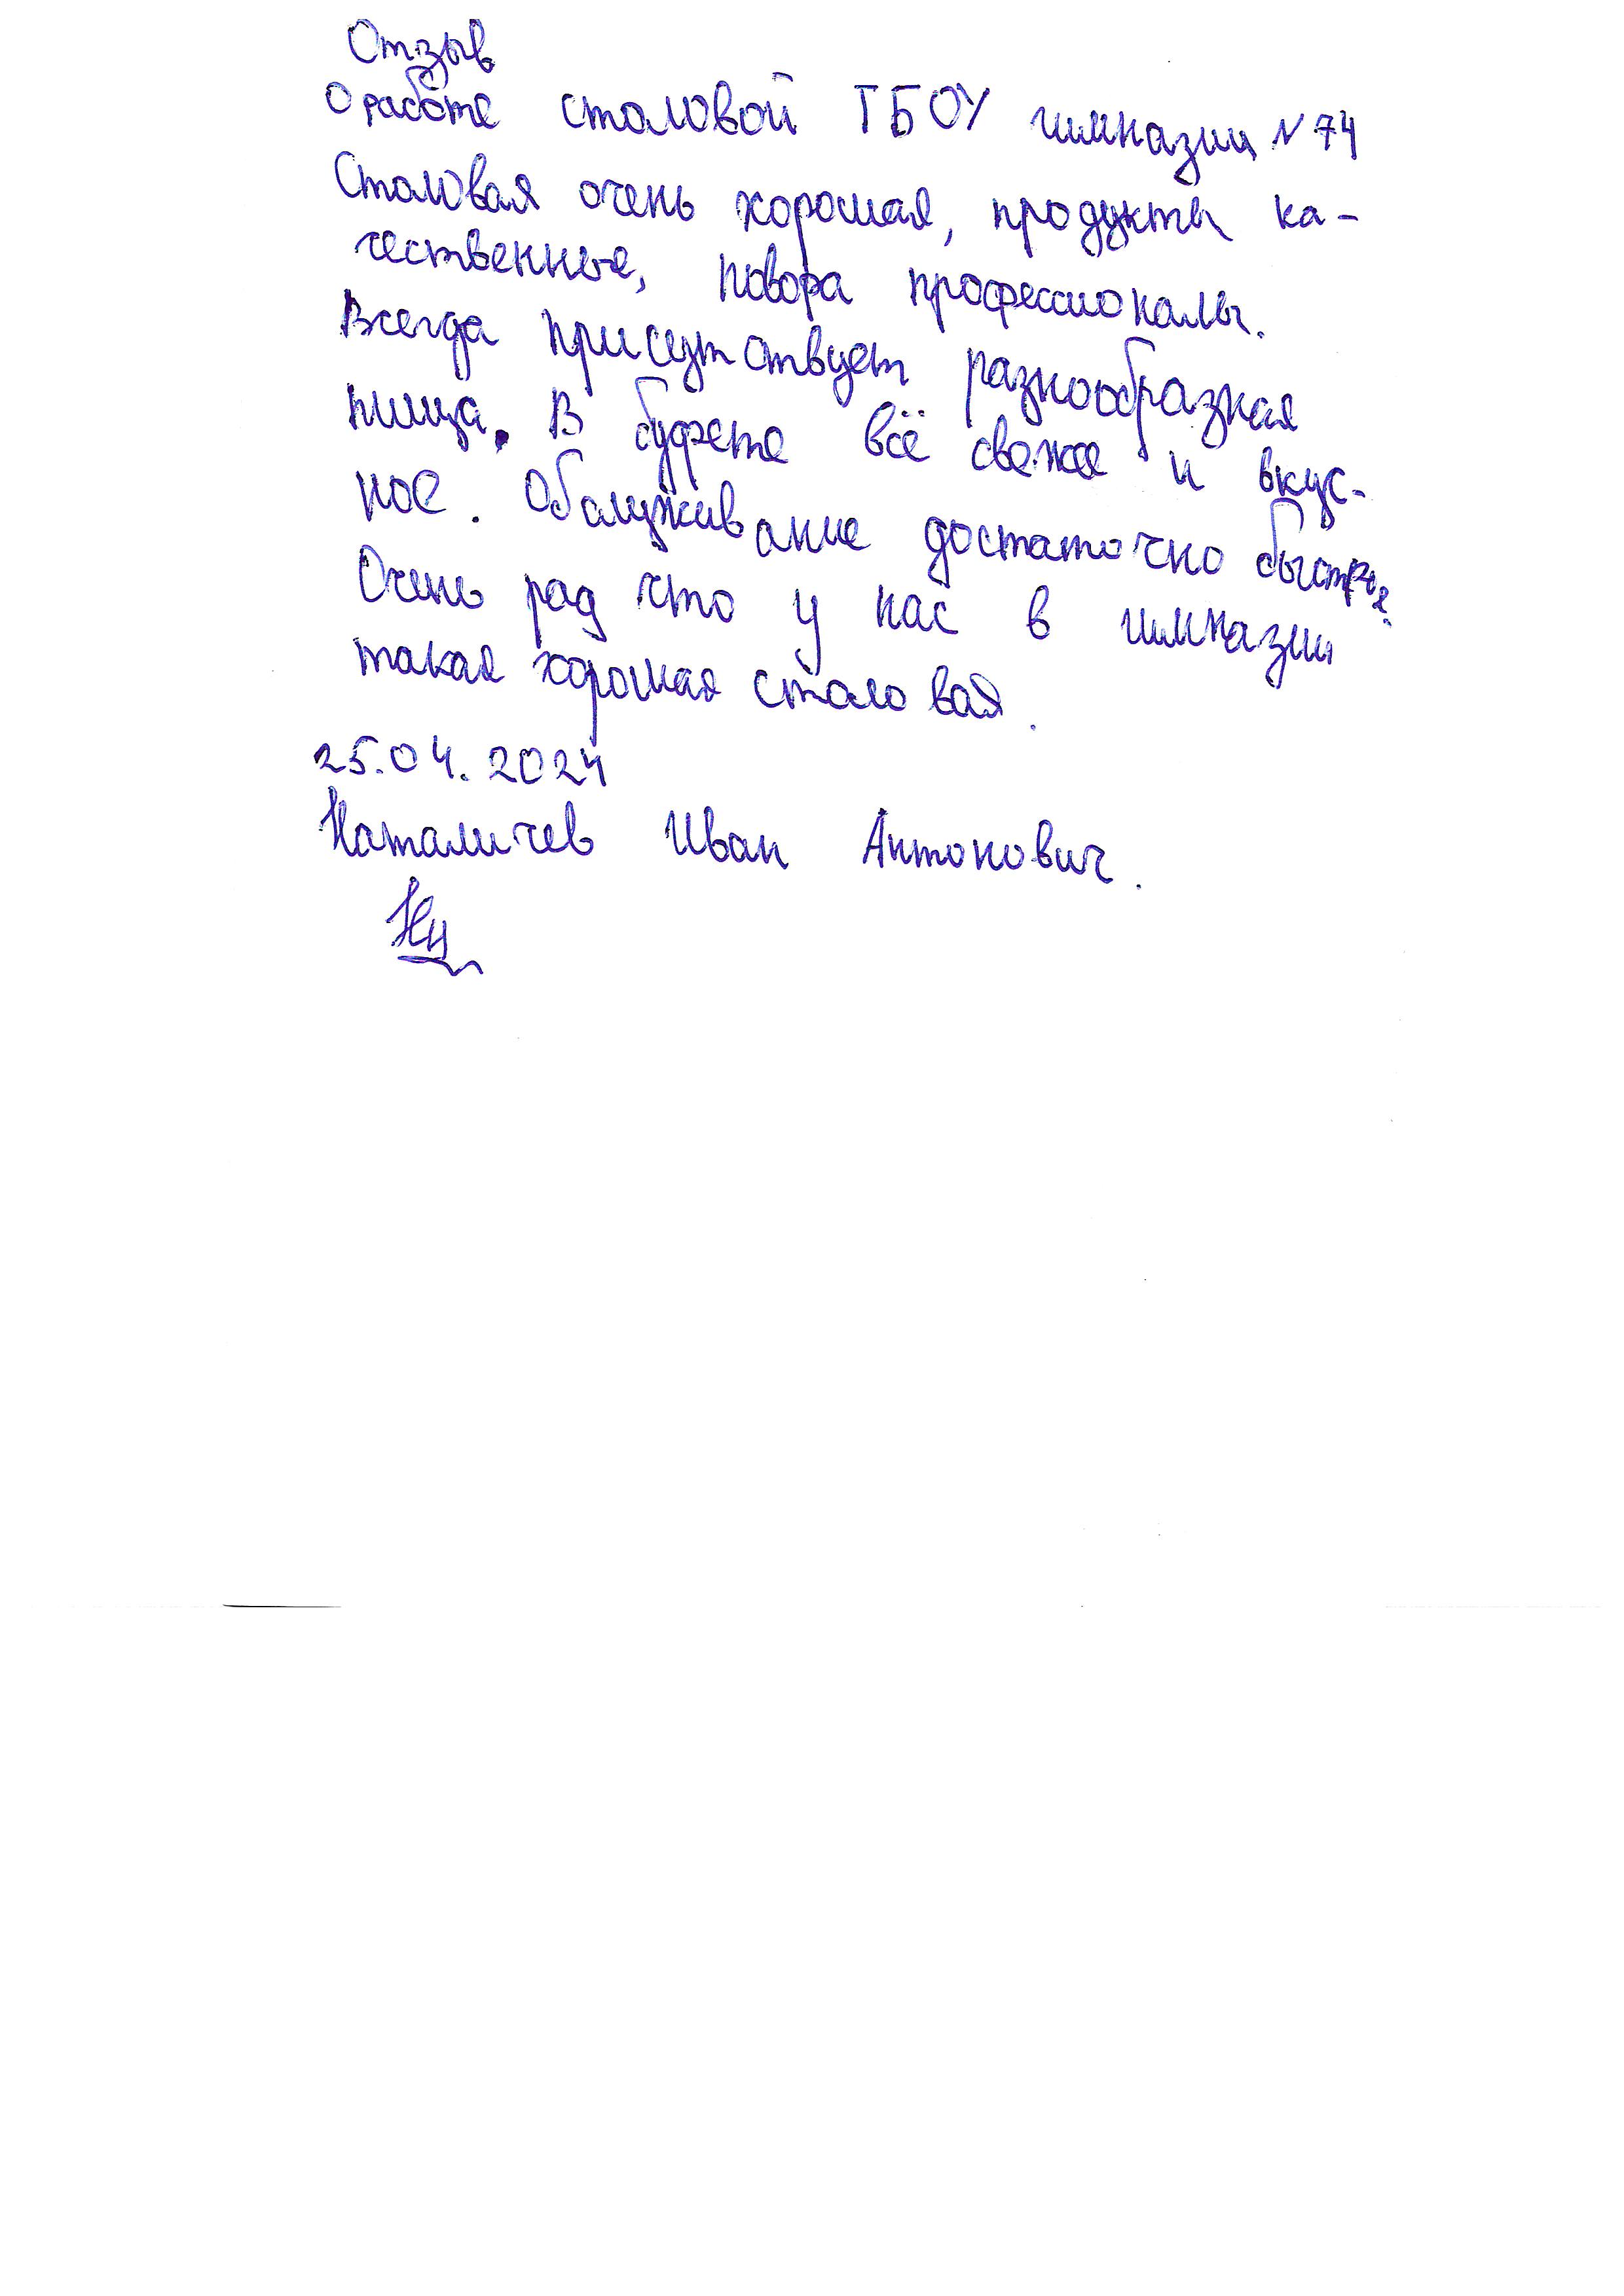 Отзыв
О работе столовой ГБОУ гимназии N 74
Столовая очень хорошая, продукты ка-
чественные, повора профессионалы.
Всегда присутствует разнообразная
пища. В буфете всё свежее и вкус-
ное. Обслуживание достаточно быстрое.
Очень рад что у нас в гимназии
такая хорошая столовая.
25.04.2024
Наталичев Иван Антонович.